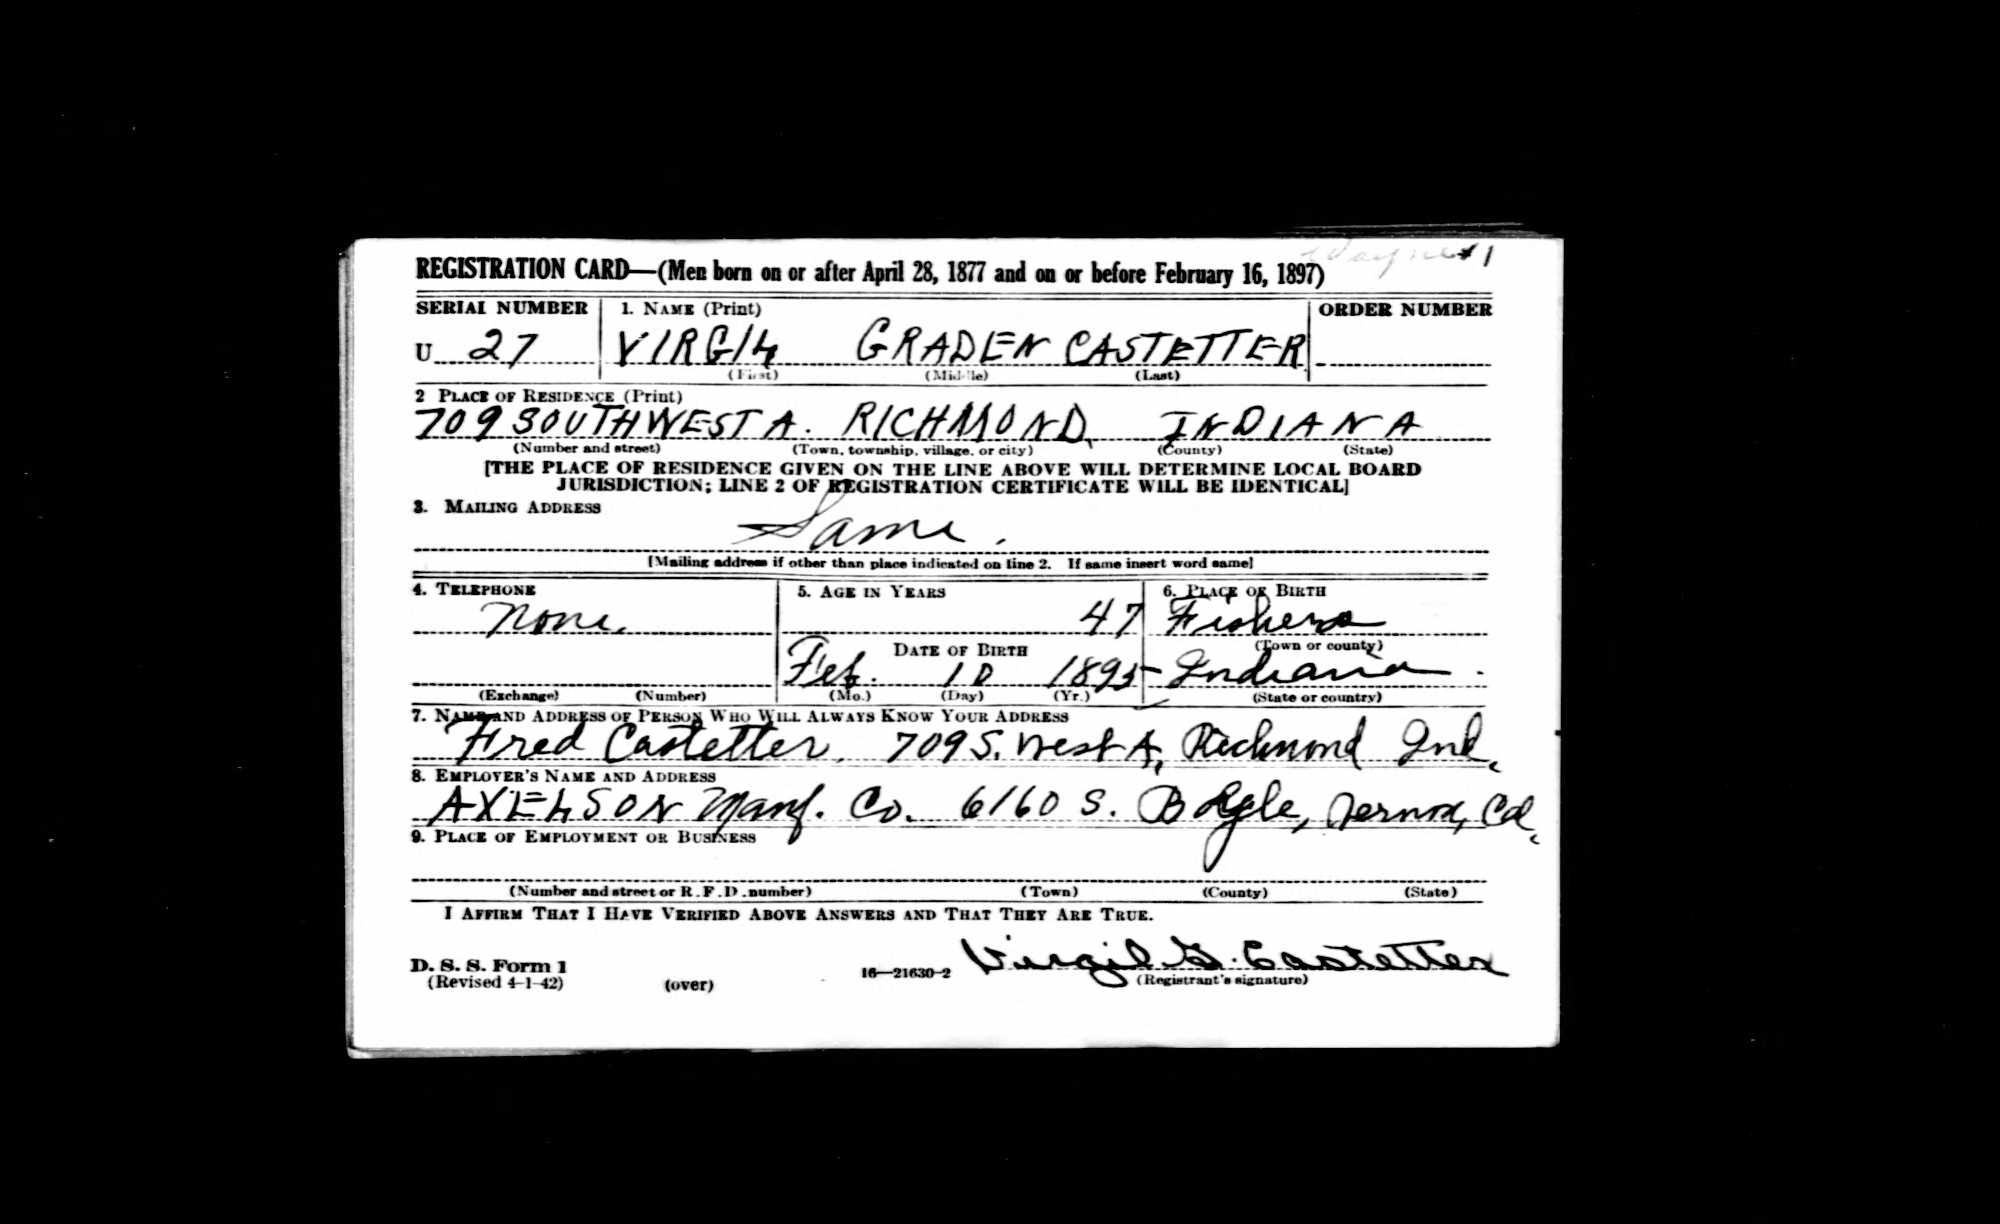 Wayne #1
REGISTRATION CARD—(Men born on or after April 28, 1877 and on or before February 16, 1897)
SERIAL NUMBER 1. NAME (Print) ORDER NUMBER
U 27 VIRGIL GRADEN CASTETTER
(First) (Middle) (Last)
2 PLACE OF RESIDENCE (Print)
709 SOUTH WEST A. RICHMOND, INDIANA
(Number and street) (Town, township, village, or city) (County) (State)
[THE PLACE OF RESIDENCE GIVEN ON THE LINE ABOVE WILL DETERMINE LOCAL BOARD
JURISDICTION; LINE 2 OF REGISTRATION CERTIFICATE WILL BE IDENTICAL]
3. MAILING ADDRESS
Same.
[Mailing address if other than place indicated on line 2. If same insert word same]
4. TELEPHONE 5. AGE IN YEARS 6. PLACE OF BIRTH
None. 47 Fishers
DATE OF BIRTH (Town or county)
Feb. 10 1895 Indiana.
(Exchange) (Number) (Mo.) (Day) (Yr.) (State or country)
7. NAME AND ADDRESS OF PERSON WHO WILL ALWAYS KNOW YOUR ADDRESS
Fred Castetter, 709 S. West A, Richmond Ind.
8. EMPLOYER'S NAME AND ADDRESS
AXELSON Manf. Co. 6160 S. Boyle, Vernon, Cal.
9. PLACE OF EMPLOYMENT OR BUSINESS
(Number and street or R.F.D. number) (Town) (County) (State)
I AFFIRM THAT I HAVE VERIFIED ABOVE ANSWERS AND THAT THEY ARE TRUE.
Virgil G. Castetter
D. S. S. Form 1 16—21630-2 (Registrant's signature)
(Revised 4-1-42) (over)